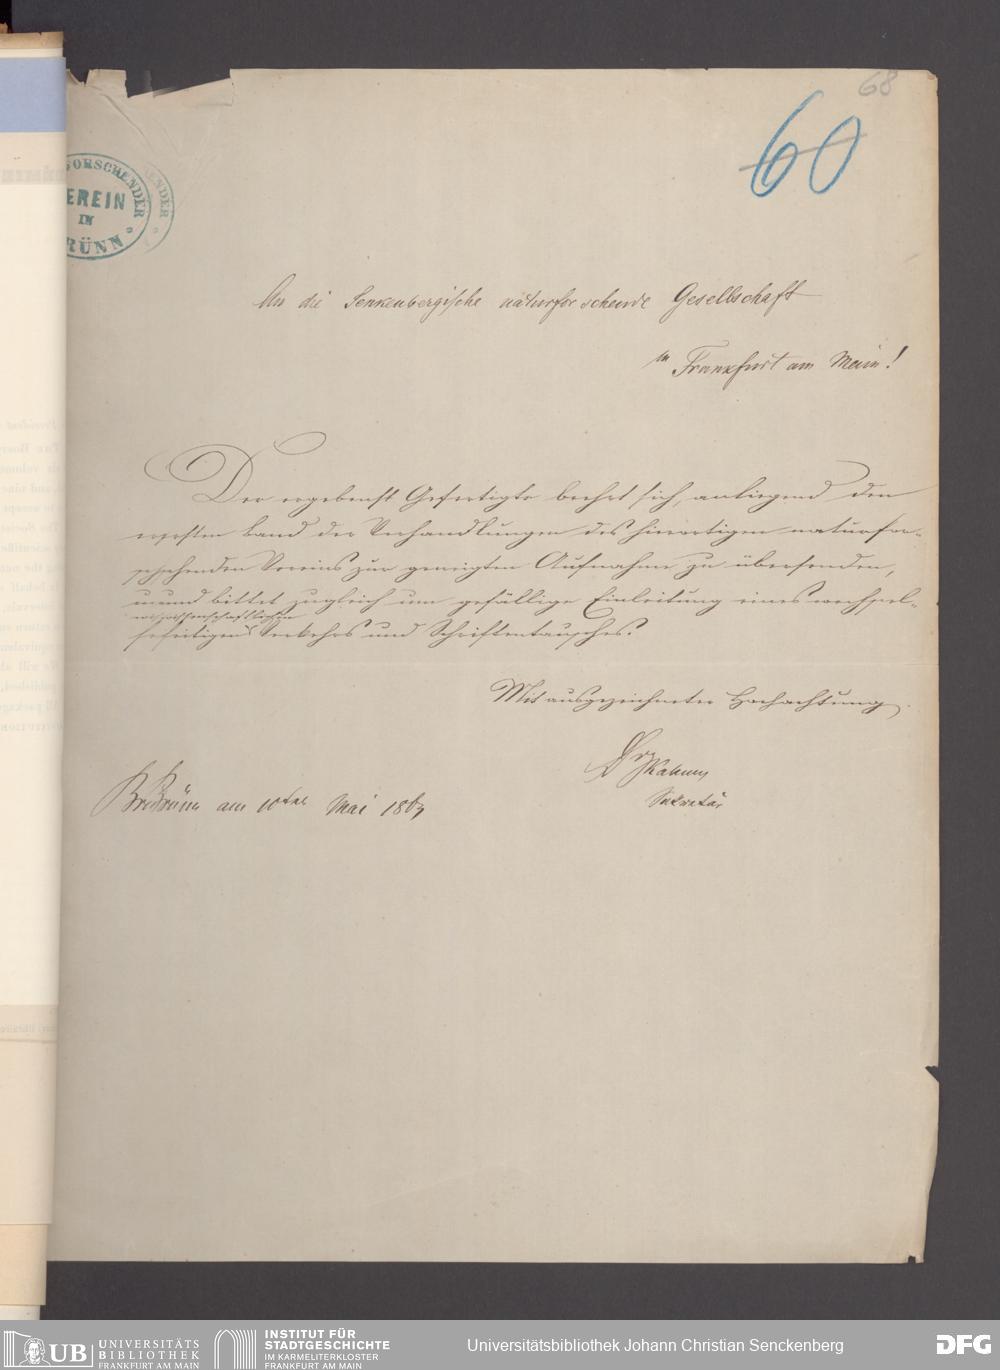 68
60
FORSCHENDER
VEREIN
IN
BRÜNN
An die Senkenbergische naturforschende Gesellschaft
in Frankfurt am Main!
Der ergebenst Gefertigte beehrt sich, anliegend den
ersten Band der Verhandlungen des hierortigen naturfor-
schenden Vereins zur geneigten Aufnahme zu übersenden,
und bittet zugleich um gefällige Einleitung eines wechsel-
wissenschaftlichen
seitigen Verkehrs und Schriftentausches.
Mit ausgezeichneter Hochachtung
Dr Kalmus
Sekretär
Brünn am 10ten Mai 1863
UB UNIVERSITÄTS
BIBLIOTHEK
FRANKFURT AM MAIN
INSTITUT FÜR
STADTGESCHICHTE
IM KARMELITERKLOSTER
FRANKFURT AM MAIN
Universitätsbibliothek Johann Christian Senckenberg
DFG